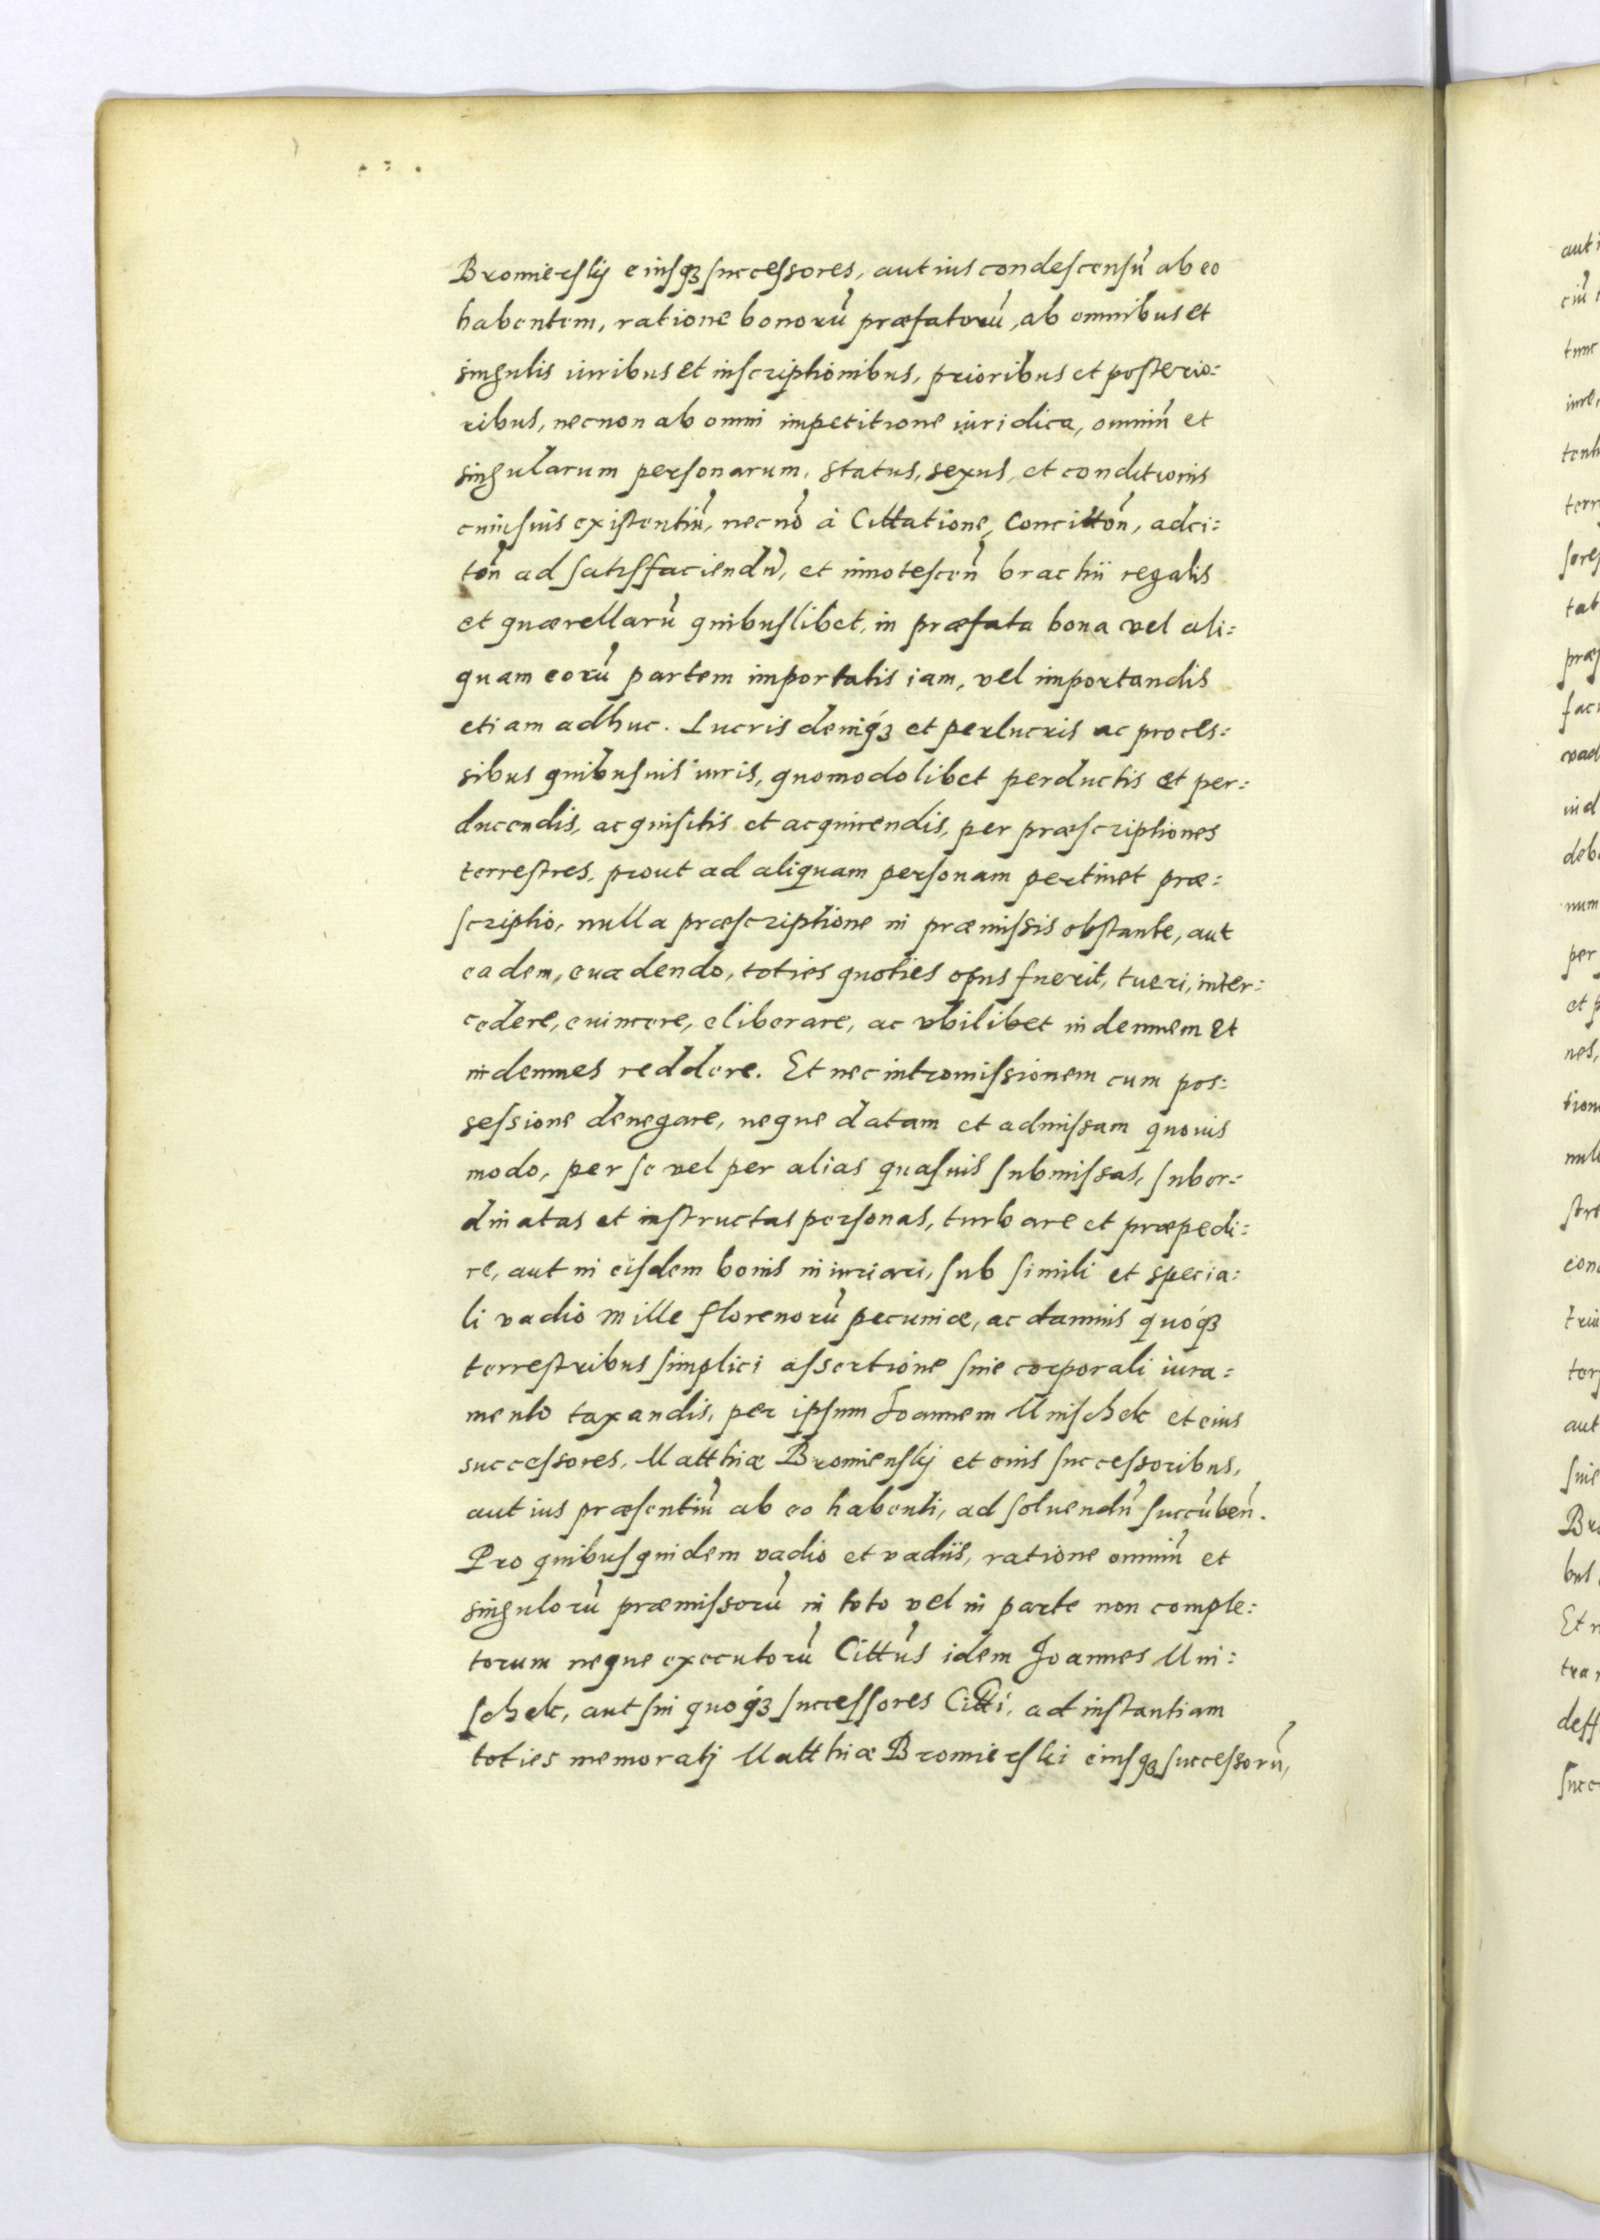 Bromierskij eiusqȝ successores, aut ius condescensu᷑ ab eo
habentem, ratione bonoru᷑ præfatoru᷑, ab omnibus et
singulis iuribus et inscriptionibus, prioribus et posterio:
ribus, necnon ab omni impetitione iuridica, omniu᷑ et
singularum personarum, status, sexus, et conditionis
cuiusuis existentiu᷑, necno᷑ à Cittatione, Concitto᷑n, adci:
to᷑n ad satisfaciendu᷑, et innotescen᷑ brachii regalis
et quærellaru᷑ quibuslibet, in præfata bona vel ali:
quam eoru᷑ partem importatis iam, vel importandis
etiam adhuc. Lucris deniqȝ et perlucris ac proces:
sibus quibusuis iuris, quomodolibet perductis et per:
ducendis, acquisitis et acquirendis, per præscriptiones
terrestres, prout ad aliquam personam pertinet præ:
scriptio, nulla præscriptione in præmissis obstante, aut
eadem, euadendo, toties quoties opus fuerit, tueri, inter:
cedere, euincere, eliberare, ac vbilibet indemnem et
indemnes reddere. Et nec intromissionem cum pos:
sessione denegare, neque datam et admissam quouis
modo, per se vel per alias quasuis submissas, subor:
dinatas et instructas personas, turbare et præpedi:
re, aut in eisdem bonis iniuriari, sub simili et specia:
li vadio mille florenoru᷑ pecuniæ, ac damnis quoqȝ
terrestribus simplici assertione sine corporali iura:
mento taxandis, per ipsum Joannem Mnischek et eius
successores, Matthiæ Bromierskij et eius successoribus,
aut ius præsentiu᷑ ab eo habenti, ad soluendu᷑ succu᷑ben᷑.
Pro quibusquidem vadio et vadiis, ratione omniu᷑ et
singuloru᷑ præmissoru᷑ in toto vel in parte non comple:
torum neque executoru᷑ Cittu᷑s idem Joannes Mni:
schek, aut sui quoqȝ successores Citti, ad instantiam
toties memoratj Matthiæ Bromierski eiusqȝ successoru᷑,